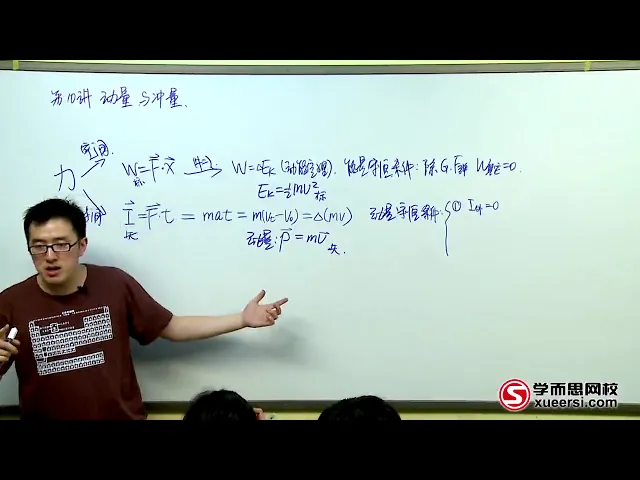 第10讲 动量与冲量.
空间
力 W=F⃗·x⃗ → W=ΔEk (动能定理). 能量守恒条件: 除G.F弹 W其它=0.
标
Ek=½mv² 标
时间 I⃗=F⃗·t = mat = m(vt-v0) = Δ(mv) 动量守恒条件: { ① I外=0
矢
动量: p⃗=mv⃗ 矢.
学而思网校
xueersi.com